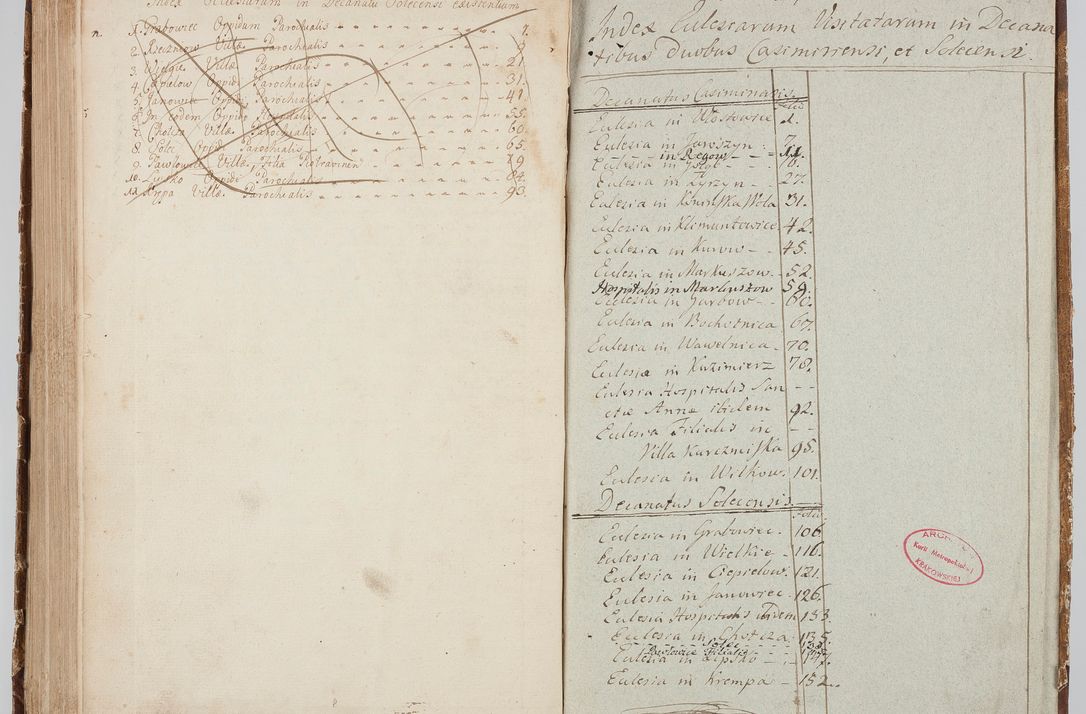 Index Ecclesiarum in Decanatu Solecensi existentium
1. Grabowiec Oppidum Parochialis 1.
2. Rzeczniow Villæ Parochialis
3. Wielgie Villæ Parochialis 21
4. Ciepielow Oppidi Parochialis 31.
5. Janowiec Oppidi Parochialis 41.
6. In eodem Oppido Hospitalis 55.
7. Chotcza Villæ Parochialis 60.
8. Solec Oppidi Parochialis 65.
9. Pawlowice Villæ, Filia Piotravinen 79
10. Lipsko Oppidi Parochialis 84.
11. Krępa Villæ Parochialis 93.
Index Eclesiarum Visitatarum in Decana
tibus Duobus Casimiriensi, et Solecensi.
Decanatus Casimiriensis
Folio
Eclesia in Wostowice 1.
Eclesia in Jaroszyn 7.
in Regow 11.
Eclesia in Gołąb
Eclesia in Zyrzyn 27.
Eclesia in Końska Wola 31.
Eclesia in Klimuntowice 42.
Eclesia in Kurow 45.
Eclesia in Markuszow 52.
Hospitalis in Markuszow 59.
Eclesia in Garbow 60.
Eclesia in Bochotnica 67.
Eclesia in Wawelnica 70.
Eclesia in Kazimierz 78.
Eclesia Hospitalis San
ctæ Annæ ibidem 92.
Eclesia Filialis in
Villa Karczmiska 95.
Eclesia in Wilkow 101.
Decanatus Solecensis
Folio
Eclesia in Grabowiec 106
Eclesia in Wielkie 116.
Eclesia in Ciepielow 121.
Eclesia in Janowiec 126.
Eclesia Hospitalis ibidem 133.
Eclesia in Chotcza 135.
Solec
Pawłowice Filialis
Eclesia in Lipsko
Eclesia in Krempa 152.
ARCHIWUM
Kurii Metropolitalnej
KRAKOWSKIEJ